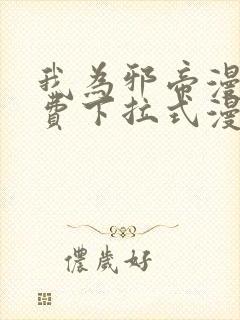 我為邪帝漫
費下拉式漫
儂歲好